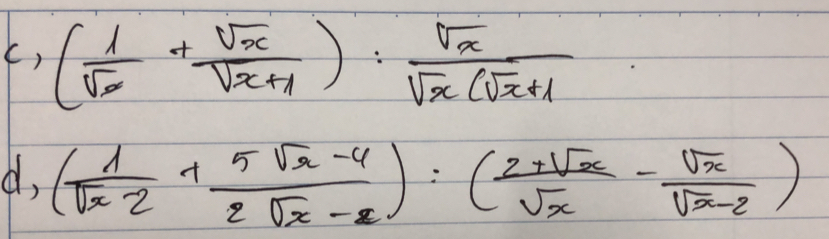 c, (1/√x + √x/√x+1) : √x/√x(√x+1 .
d, (1/√x 2 + 5√x-4/2√x-x) : (2+√x/√x - √x/√x-2)